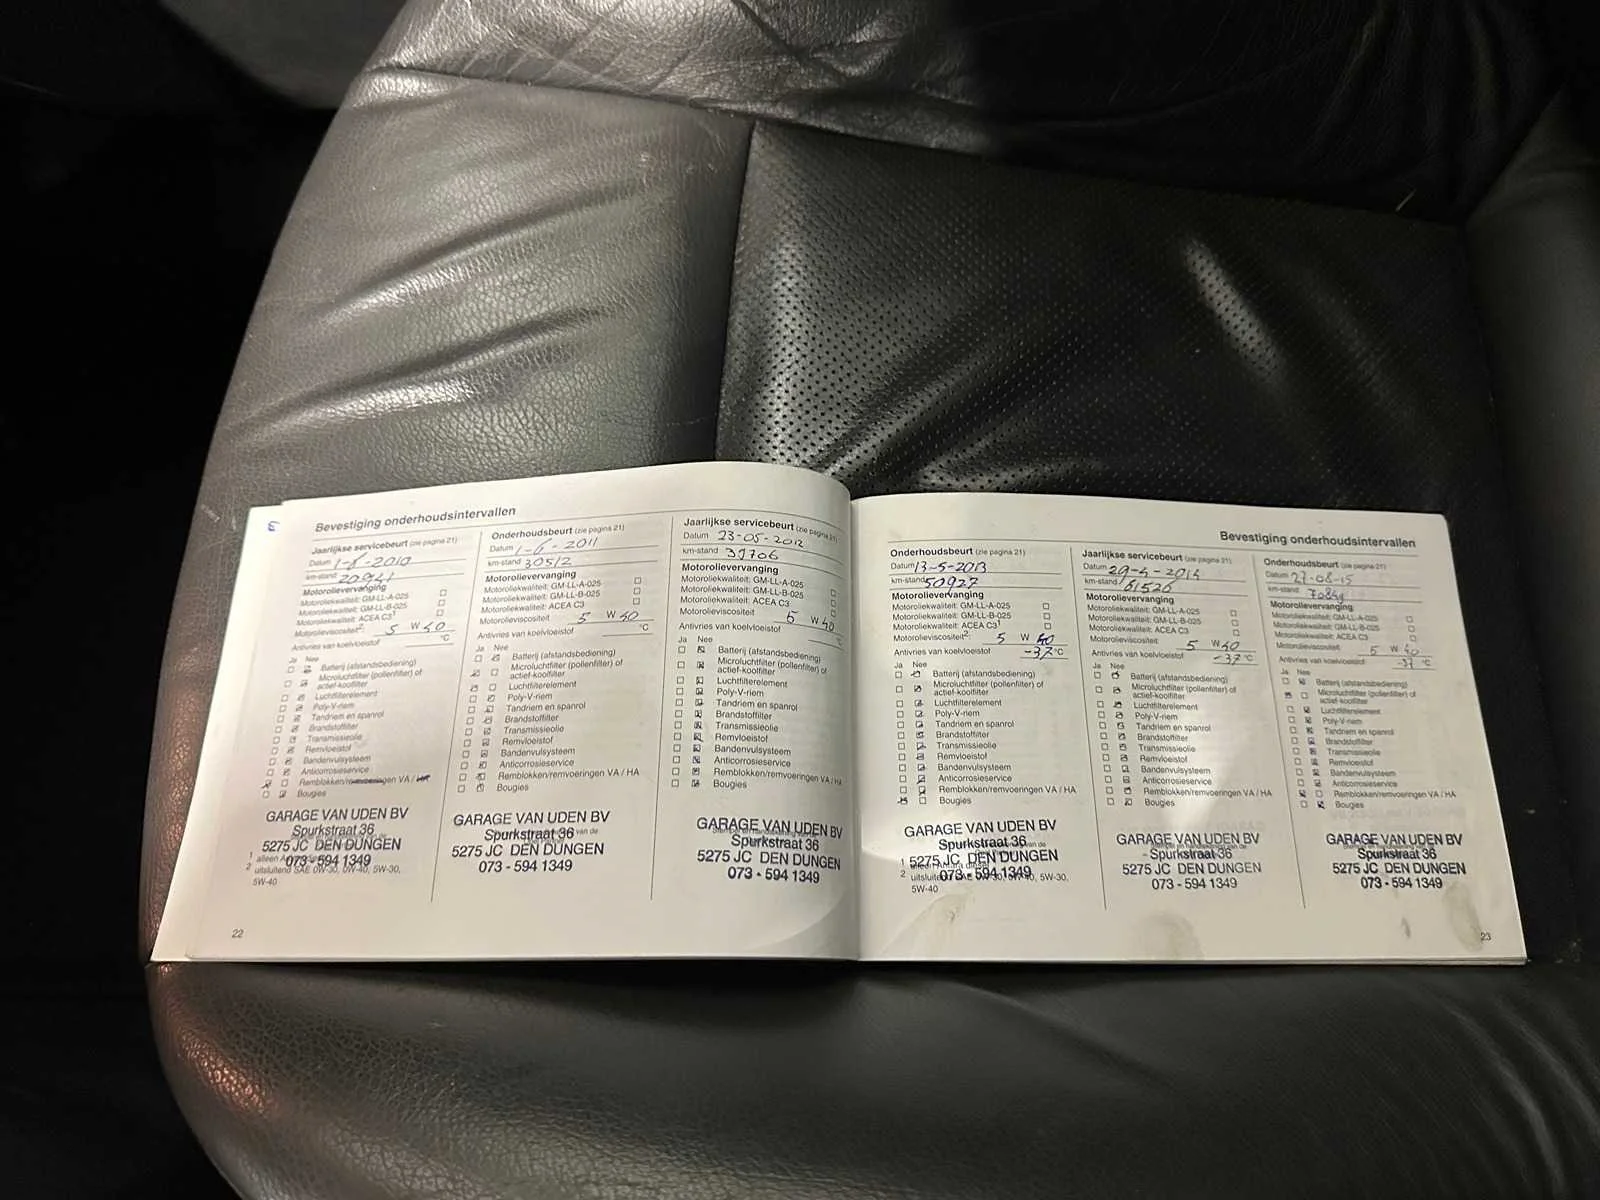 Bevestiging onderhoudsintervallen
Jaarlijkse servicebeurt (zie pagina 21)
Datum 1-6-2010
km-stand 20941
Motorolievervanging
Motoroliekwaliteit: GM-LL-A-025
Motoroliekwaliteit: GM-LL-B-025
Motoroliekwaliteit: ACEA C3¹
Motorolieviscositeit² 5 W 40
Antivries van koelvloeistof °C
Ja Nee
Batterij (afstandsbediening)
Microluchtfilter (pollenfilter) of
actief-koolfilter
Luchtfilterelement
Poly-V-riem
Tandriem en spanrol
Brandstoffilter
Transmissieolie
Remvloeistof
Bandenvulsysteem
Anticorrosieservice
Remblokken/remvoeringen VA / HA
Bougies
GARAGE VAN UDEN BV
Spurkstraat 36
5275 JC DEN DUNGEN
073-594 1349
1 alleen
2 uitsluitend SAE 0W-30, 0W-40, 5W-30,
5W-40
22
Onderhoudsbeurt (zie pagina 21)
Datum 1-6-2011
km-stand 30512
Motorolievervanging
Motoroliekwaliteit: GM-LL-A-025
Motoroliekwaliteit: GM-LL-B-025
Motoroliekwaliteit: ACEA C3
Motorolieviscositeit 5 W 40
Antivries van koelvloeistof °C
Ja Nee
Batterij (afstandsbediening)
Microluchtfilter (pollenfilter) of
actief-koolfilter
Luchtfilterelement
Poly-V-riem
Tandriem en spanrol
Brandstoffilter
Transmissieolie
Remvloeistof
Bandenvulsysteem
Anticorrosieservice
Remblokken/remvoeringen VA / HA
Bougies
GARAGE VAN UDEN BV
Spurkstraat 36
5275 JC DEN DUNGEN
073 - 594 1349
Jaarlijkse servicebeurt (zie pagina 21)
Datum 23-05-2012
km-stand 39706
Motorolievervanging
Motoroliekwaliteit: GM-LL-A-025
Motoroliekwaliteit: GM-LL-B-025
Motoroliekwaliteit: ACEA C3
Motorolieviscositeit 5 W 40
Antivries van koelvloeistof °C
Ja Nee
Batterij (afstandsbediening)
Microluchtfilter (pollenfilter) of
actief-koolfilter
Luchtfilterelement
Poly-V-riem
Tandriem en spanrol
Brandstoffilter
Transmissieolie
Remvloeistof
Bandenvulsysteem
Anticorrosieservice
Remblokken/remvoeringen VA / HA
Bougies
GARAGE VAN UDEN BV
Spurkstraat 36
5275 JC DEN DUNGEN
073 - 594 1349
Bevestiging onderhoudsintervallen
Onderhoudsbeurt (zie pagina 21)
Datum 13-5-2013
km-stand 50927
Motorolievervanging
Motoroliekwaliteit: GM-LL-A-025
Motoroliekwaliteit: GM-LL-B-025
Motoroliekwaliteit: ACEA C3¹
Motorolieviscositeit² 5 W 40
Antivries van koelvloeistof -37 °C
Ja Nee
Batterij (afstandsbediening)
Microluchtfilter (pollenfilter) of
actief-koolfilter
Luchtfilterelement
Poly-V-riem
Tandriem en spanrol
Brandstoffilter
Transmissieolie
Remvloeistof
Bandenvulsysteem
Anticorrosieservice
Remblokken/remvoeringen VA / HA
Bougies
GARAGE VAN UDEN BV
Spurkstraat 36
5275 JC DEN DUNGEN
073 - 594 1349
1
2 uitsluitend SAE 0W-30, 0W-40, 5W-30,
5W-40
Jaarlijkse servicebeurt (zie pagina 21)
Datum 29-4-2014
km-stand 61526
Motorolievervanging
Motoroliekwaliteit: GM-LL-A-025
Motoroliekwaliteit: GM-LL-B-025
Motoroliekwaliteit: ACEA C3
Motorolieviscositeit: 5 W 40
Antivries van koelvloeistof -37 °C
Ja Nee
Batterij (afstandsbediening)
Microluchtfilter (pollenfilter) of
actief-koolfilter
Luchtfilterelement
Poly-V-riem
Tandriem en spanrol
Brandstoffilter
Transmissieolie
Remvloeistof
Bandenvulsysteem
Anticorrosieservice
Remblokken/remvoeringen VA / HA
Bougies
GARAGE VAN UDEN BV
Spurkstraat 36
5275 JC DEN DUNGEN
073 - 594 1349
Onderhoudsbeurt (zie pagina 21)
Datum 27-08-15
km-stand
Motorolievervanging
Motoroliekwaliteit: GM-LL-A-025
Motoroliekwaliteit: GM-LL-B-025
Motoroliekwaliteit: ACEA C3
Motorolieviscositeit: 5 W 40
Antivries van koelvloeistof -37 °C
Ja Nee
Batterij (afstandsbediening)
Microluchtfilter (pollenfilter) of
actief-koolfilter
Luchtfilterelement
Poly-V-riem
Tandriem en spanrol
Brandstoffilter
Transmissieolie
Remvloeistof
Bandenvulsysteem
Anticorrosieservice
Remblokken/remvoeringen VA / HA
Bougies
GARAGE VAN UDEN BV
Spurkstraat 36
5275 JC DEN DUNGEN
073 - 594 1349
23